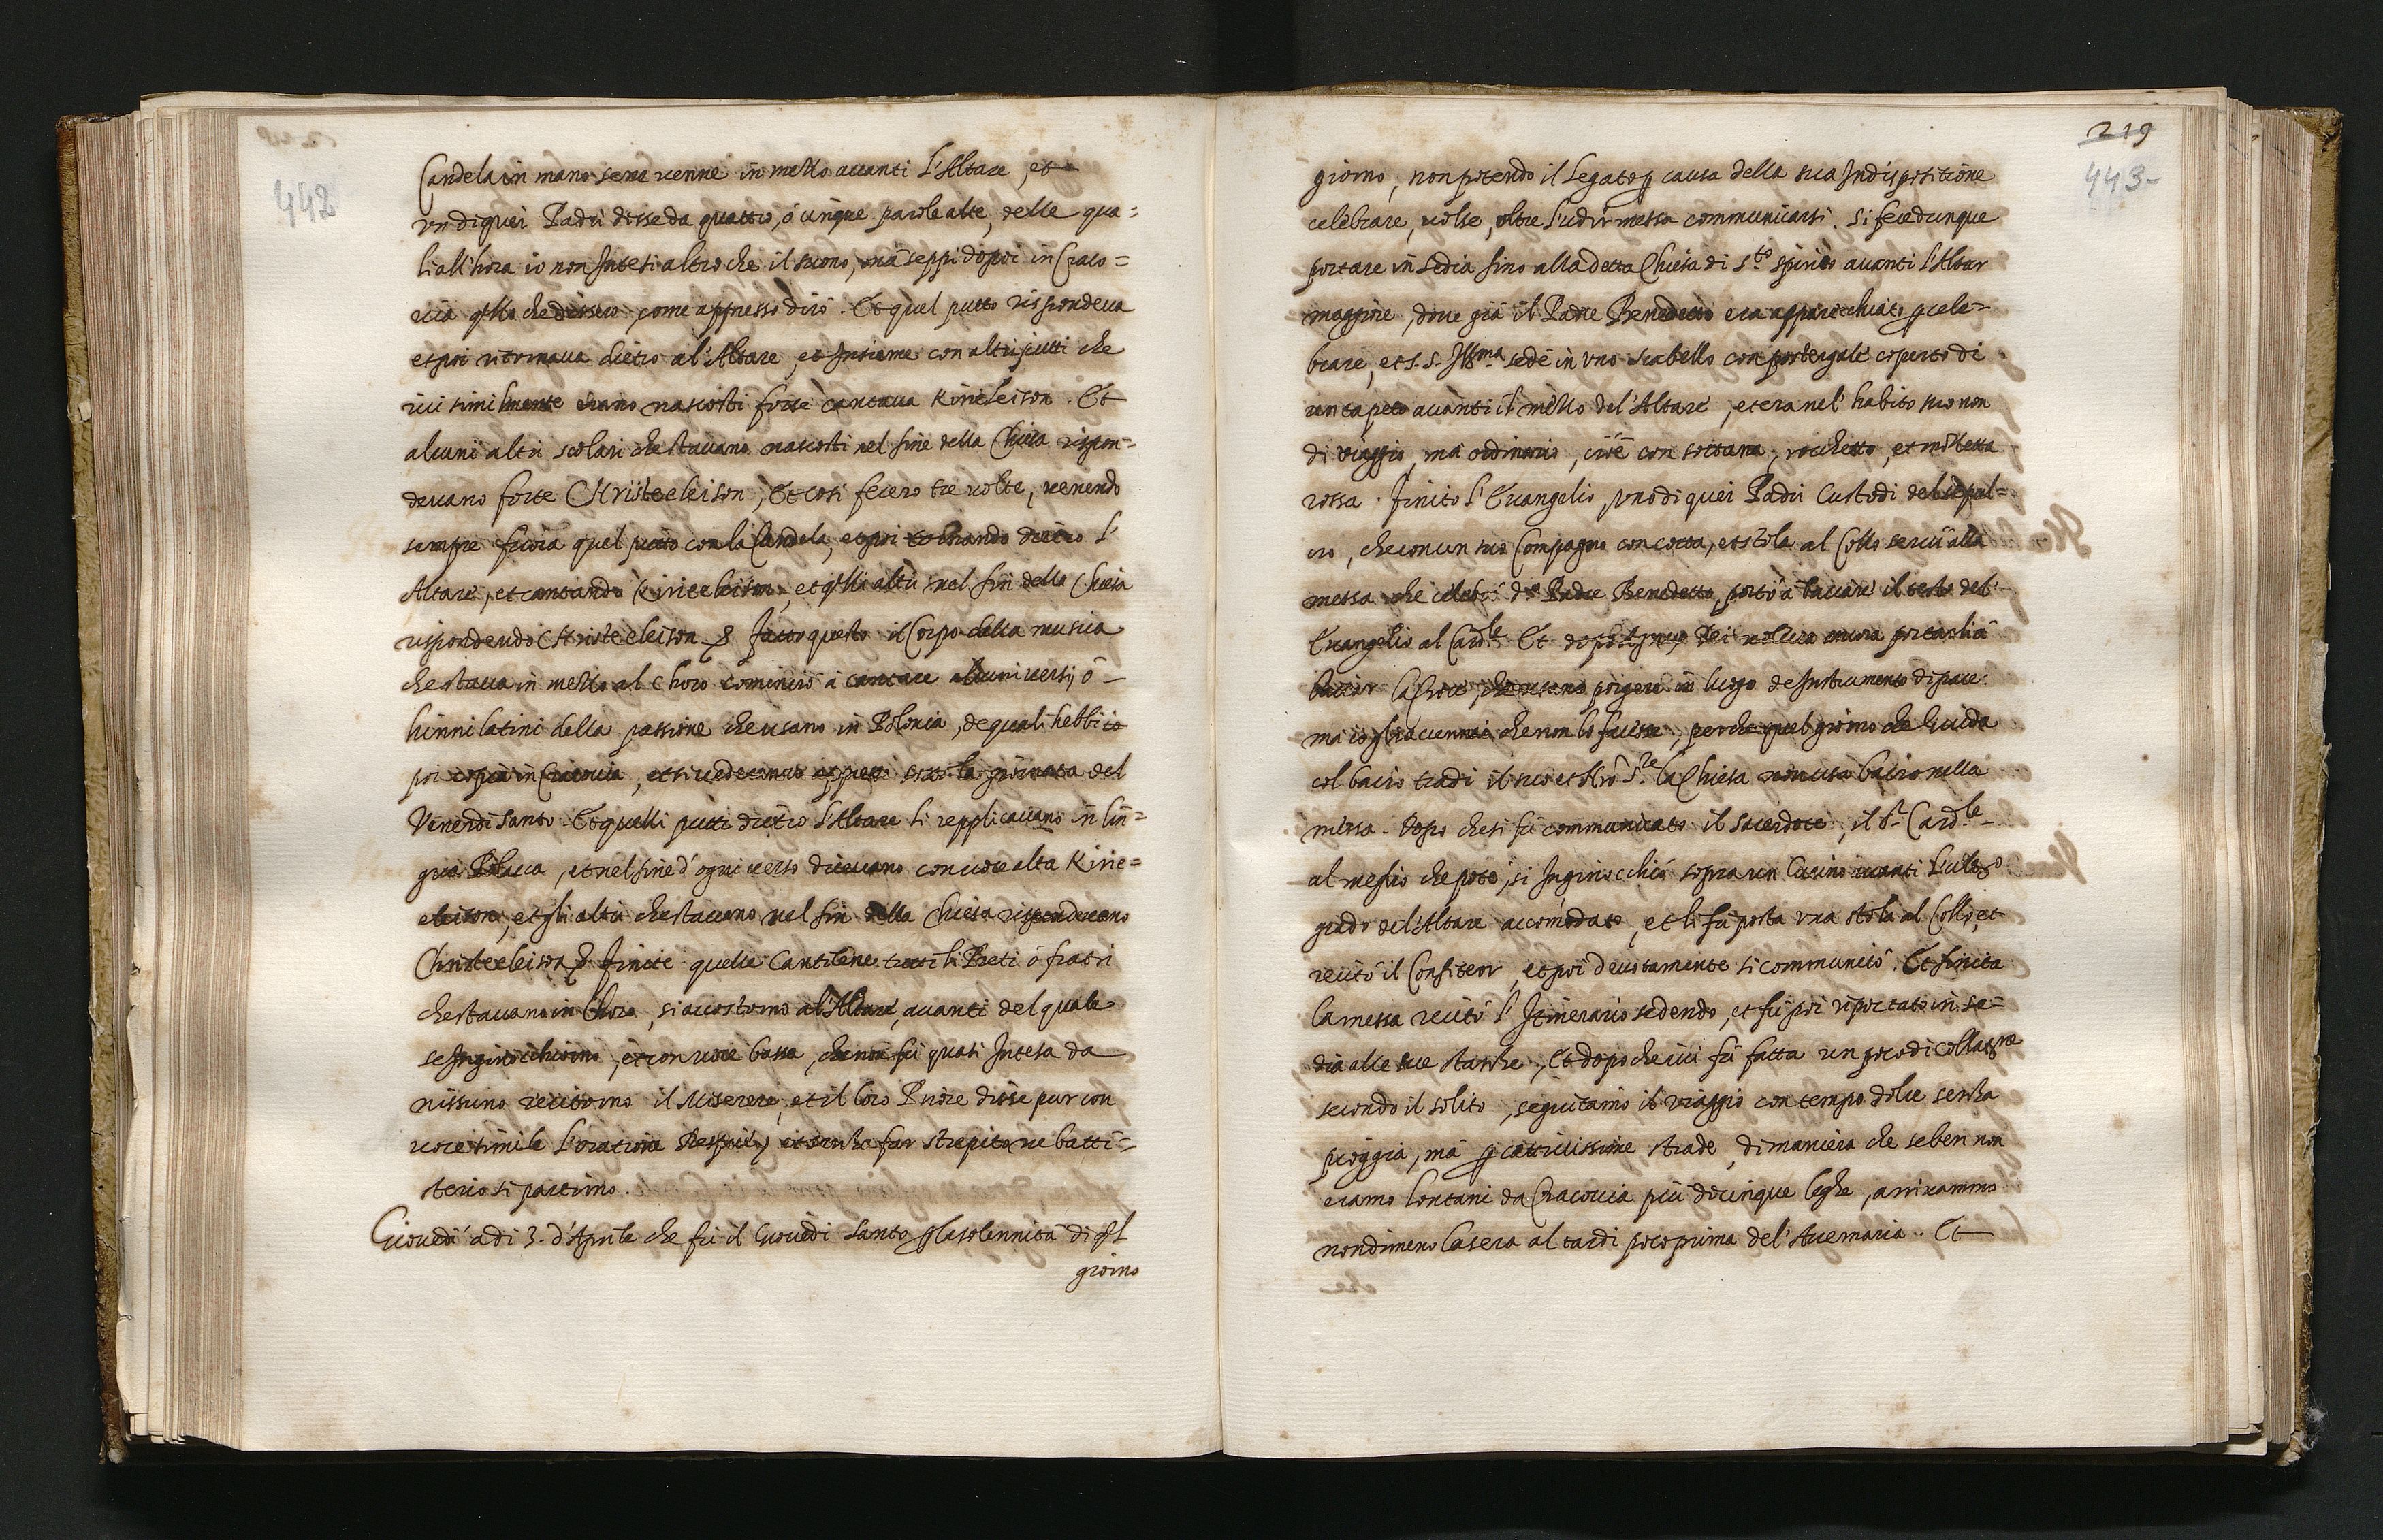 442
Candela in mano sene venne in mezzo auanti l'Altare, et
vn di quei Padri disse da quattro, ó cinque parole alte, delle qua=
li all'hora io non Intesi altro che il suono, mà seppi dopoi in Craco=
uia qllo che dissero, come appresso dirò. Et quel putto rispondeua
et poi ritornaua dietro al'Altare, et Insieme con altri putti che
iui similmente erano nascosti forte cantaua Kirieleison. Et
alcuni altri scolari che stauano nascosti nel fine della Chiesa rispon=
deuano forte Christeeleison, Et cosi fecero tre uolte, uenendo
sempre fuora quel putto con la Candela, et poi tornando dietro l'
Altare, et cantando Kirieeleison, et qlli altri nel fin della Chiesa
rispondendo Christeeleison. Fatto questo il Corpo della musica
che staua in mezzo al Choro cominciò à cantare alcuni uersi, ó
hinni latini della passione che usano in Polonia, de quali hebbi io
poi copia in Cracouia, et si uederanno appresso sotto la giornata del
Venerdi Santo. Et quelli putti dietro l'Altare li repplicauano in lin=
gua Polacca, et nel fine d'ogni uerso diceuano con uoce alta Kirie=
eleison, et gli altri che stauano nel fin della Chiesa rispondeuano
Christeeleison. Finite quelle Cantilene tutti li Preti ó fratri
che stauano in Choro, si accostorno al'Altare, auanti del quale
se Inginocchiorno, et con uoce bassa, che non fù quasi Intesa da
nissuno recitorno il Miserere, et il loro Priore disse pur con
uoce simile l'oratione Respice, et senza far strepito ne batti=
terio si partirno.
Giouedi à di 3. d'Aprile che fù il Giouedi Santo p la solennità di ql
giorno
219
443-
giorno, non potendo il Legato p causa della sua Indispositione
celebrare, uolse, oltre l'udir messa communicarsi. Si fece dunque
portare in sedia sino alla detta Chiesa di s.to spirito auanti l'Altar
maggiore, doue già il Padre Benedetto era apparecchiato p cele=
brare, et S. S. Illma. sedè in vno scabello con postergale coperto di
un tapeto auanti il mezzo del'Altare, et era nel'habito suo non
di viaggio, mà ordinario, cioè con sottana, rocchetto, et mozzetta
rossa. Finito l'Euangelio, vno di quei Padri Custodi del sepol=
cro, che con un suo Compagno con cotta, et stola al Collo seruì alla
messa che celebrò do. Padre Benedetto, portò à baciare il testo del'
Euangelio al Cardle. Et dopò Agnus Dei uoleua ancora portarli à
baciar la Croce, che usano porgere in luogo de Instrumento di pace.
mà io gli accennai che non lo facesse, perche quel giorno che Giuda
col bacio tradi il suo et nro Sre. la Chiesa non usa bacio nella
messa. Dopo che si fù communicato il sacerdote, il Sr. Cardle.
al meglio che potè, si Inginocchiò sopra un Cuscino auanti l'ultimo
grado del'Altare accomodato, et li fù posta vna stola al Collo, et
recitò il Confiteor, et poi deuotamente si communicò. Et finita
la messa recitò l'Itinerario sedendo, et fù poi riportato in se=
dia alle sue stanze, Et dopo che iui fù fatta un poco di collatne
secondo il solito, seguitamo il viaggio con tempo dolce senza
pioggia, mà p cattiuissime strade, di maniera che seben non
eramo lontani da Cracouia più di cinque leghe, arriuammo
nondimeno la sera al tardi poco prima del'Auemaria. Et